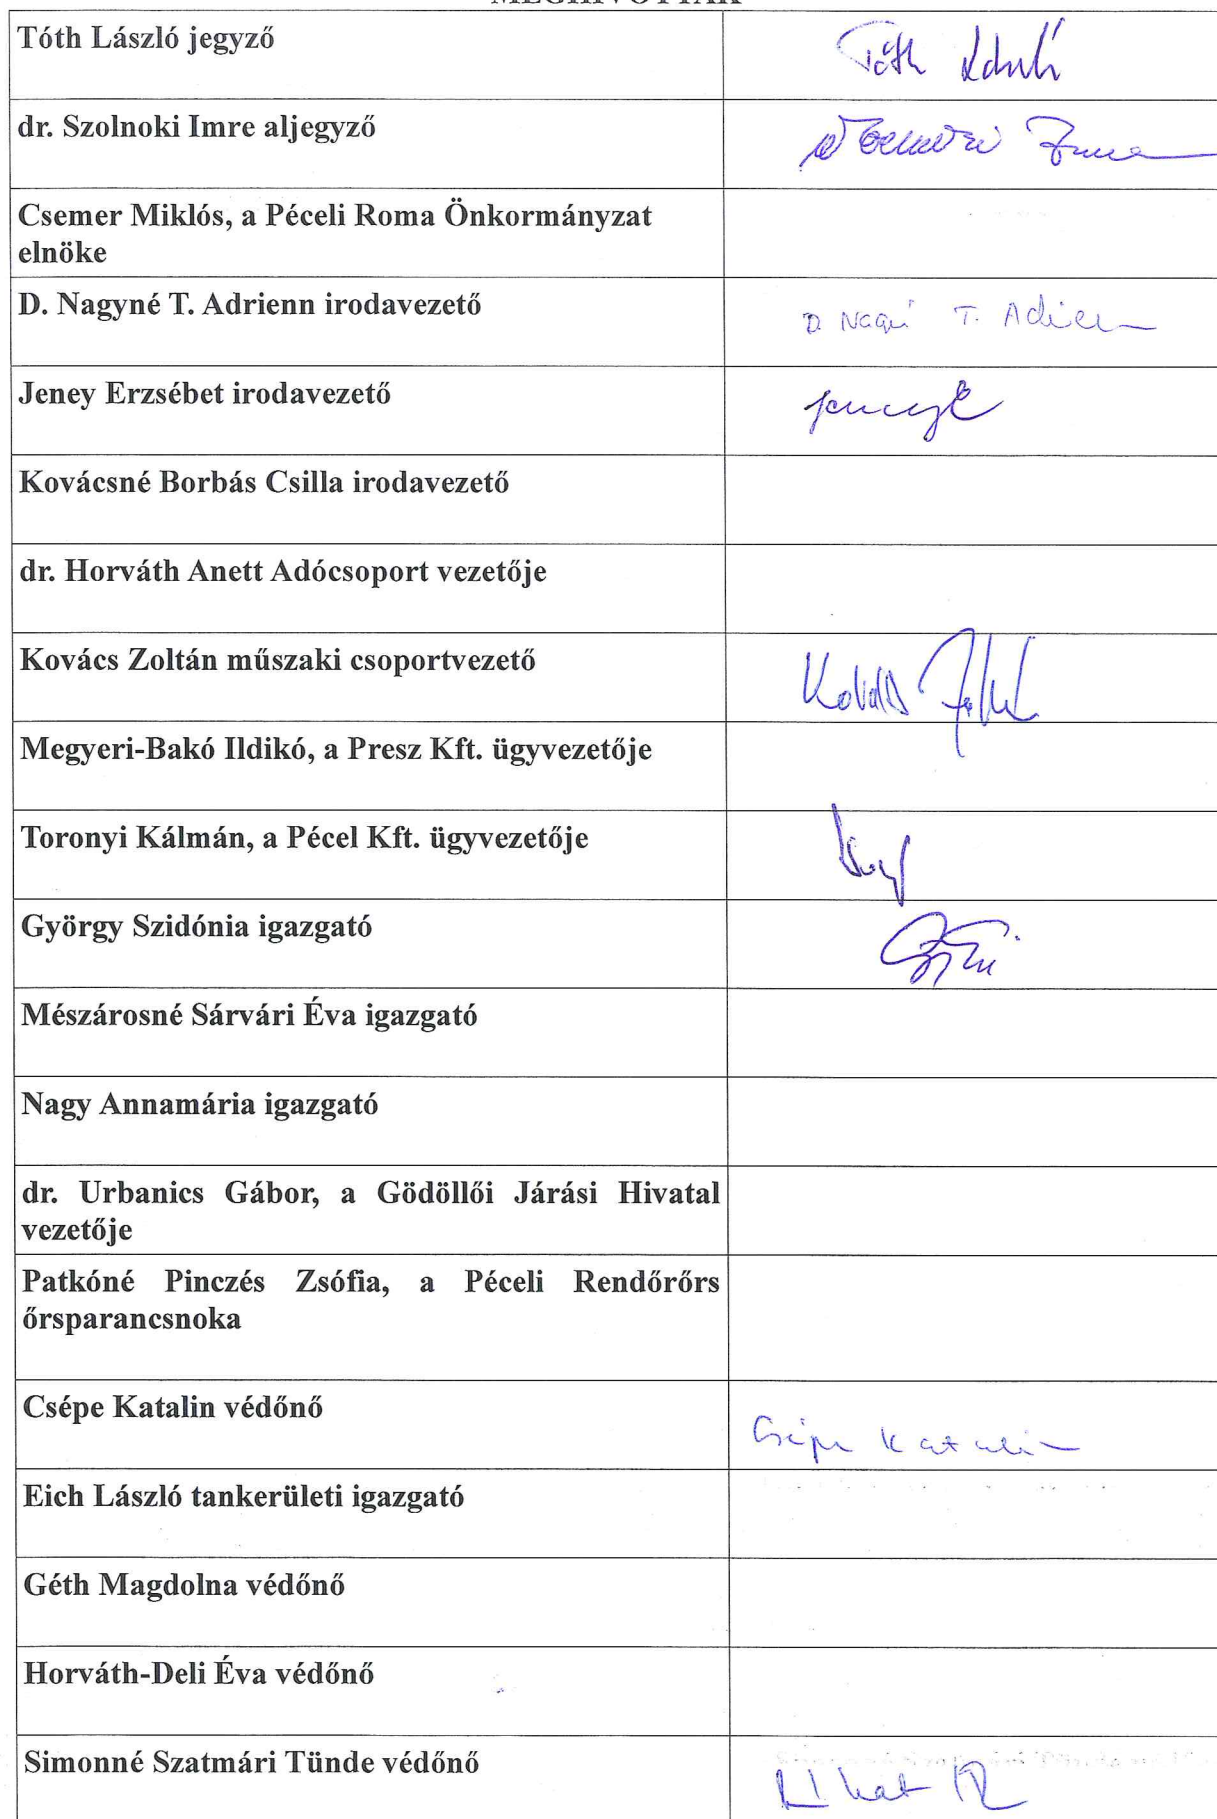 MEGHÍVOTTAK
Tóth László jegyző
Tóth László
dr. Szolnoki Imre aljegyző
Szolnoki Imre
Csemer Miklós, a Péceli Roma Önkormányzat
elnöke
D. Nagyné T. Adrienn irodavezető
D. Nagyné T. Adrienn
Jeney Erzsébet irodavezető
Kovácsné Borbás Csilla irodavezető
dr. Horváth Anett Adócsoport vezetője
Kovács Zoltán műszaki csoportvezető
Kovács Zoltán
Megyeri-Bakó Ildikó, a Presz Kft. ügyvezetője
Toronyi Kálmán, a Pécel Kft. ügyvezetője
György Szidónia igazgató
Mészárosné Sárvári Éva igazgató
Nagy Annamária igazgató
dr. Urbanics Gábor, a Gödöllői Járási Hivatal
vezetője
Patkóné Pinczés Zsófia, a Péceli Rendőrőrs
őrsparancsnoka
Csépe Katalin védőnő
Csépe Katalin
Eich László tankerületi igazgató
Géth Magdolna védőnő
Horváth-Deli Éva védőnő
Simonné Szatmári Tünde védőnő